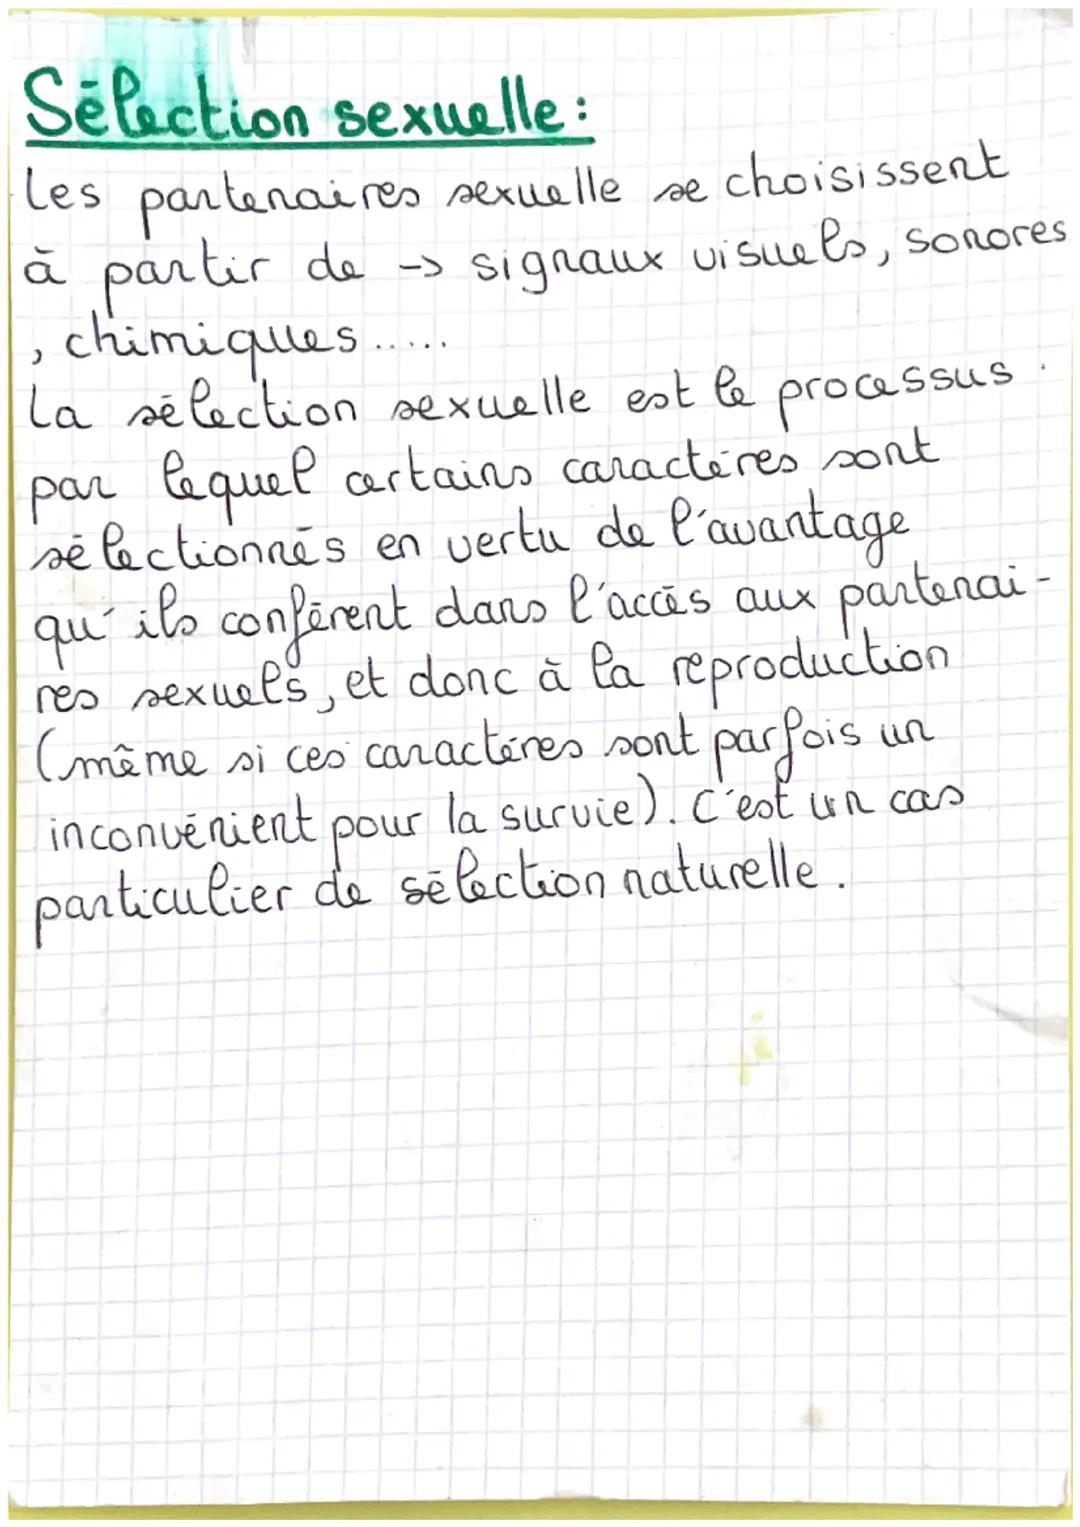 Sélection sexuelle :
Les partenaires sexuelle se choisissent
à partir de -> signaux visuels, sonores
, chimiques.....
La sélection sexuelle est le processus
par lequel certains caractères sont
sélectionnés en vertu de l'avantage
qu'ils confèrent dans l'accès aux partenai-
res sexuels, et donc à la reproduction
(même si ces caractères sont parfois un
inconvénient pour la survie). C'est un cas
particulier de sélection naturelle.